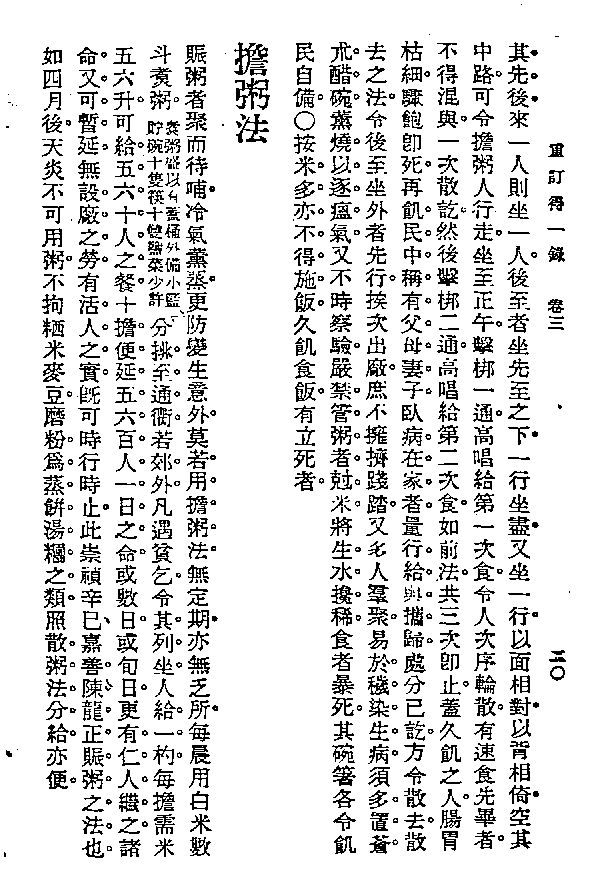 重訂得一錄　卷三　二〇
其先後來一人則坐一人。後至者坐先至之下一行坐盡又坐一行以面相對以背相倚空其
中路可令擔粥人行走坐至正午擊梆一通高唱給第一次食令人次序輪散有速食先畢者。
不得混與一次散訖然後擊梆二通高唱給第二次食如前法共三次卽止蓋久飢之人腸胃
枯細驟飽卽死再飢民中稱有父母妻子臥病在家者量行給與攜歸處分已訖方令散去散
去之法令後至坐外者先行挨次出廠庶不擁擠踐踏又多人羣聚易於穢染生病須多置蒼
朮醋碗薰燒以逐瘟氣又不時察驗嚴禁管粥者尅米將生水攙稀食者暴死其碗箸各令飢
民自備〇按米多亦不得施飯久飢食飯有立死者。
擔粥法
賑粥者聚而待哺冷氣薰蒸更防變生意外莫若用擔粥法無定期亦無乏所每晨用白米數
斗煑粥。煑粥盛以有蓋桶外備小籃貯碗十隻筷十雙鹽菜少許分挑至通衢若郊外凡遇貧乞令其列坐人給一杓每擔需米
五六升可給五六十人之餐十擔便延五六百人一日之命或數日或旬日更有仁人繼之諸
命又可暫延無設廠之勞有活人之實旣可時行時止此崇禎辛巳嘉善陳龍正賑粥之法也。
如四月後天炎不可用粥不拘粞米麥豆磨粉爲蒸餅湯糰之類照散粥法分給亦便。